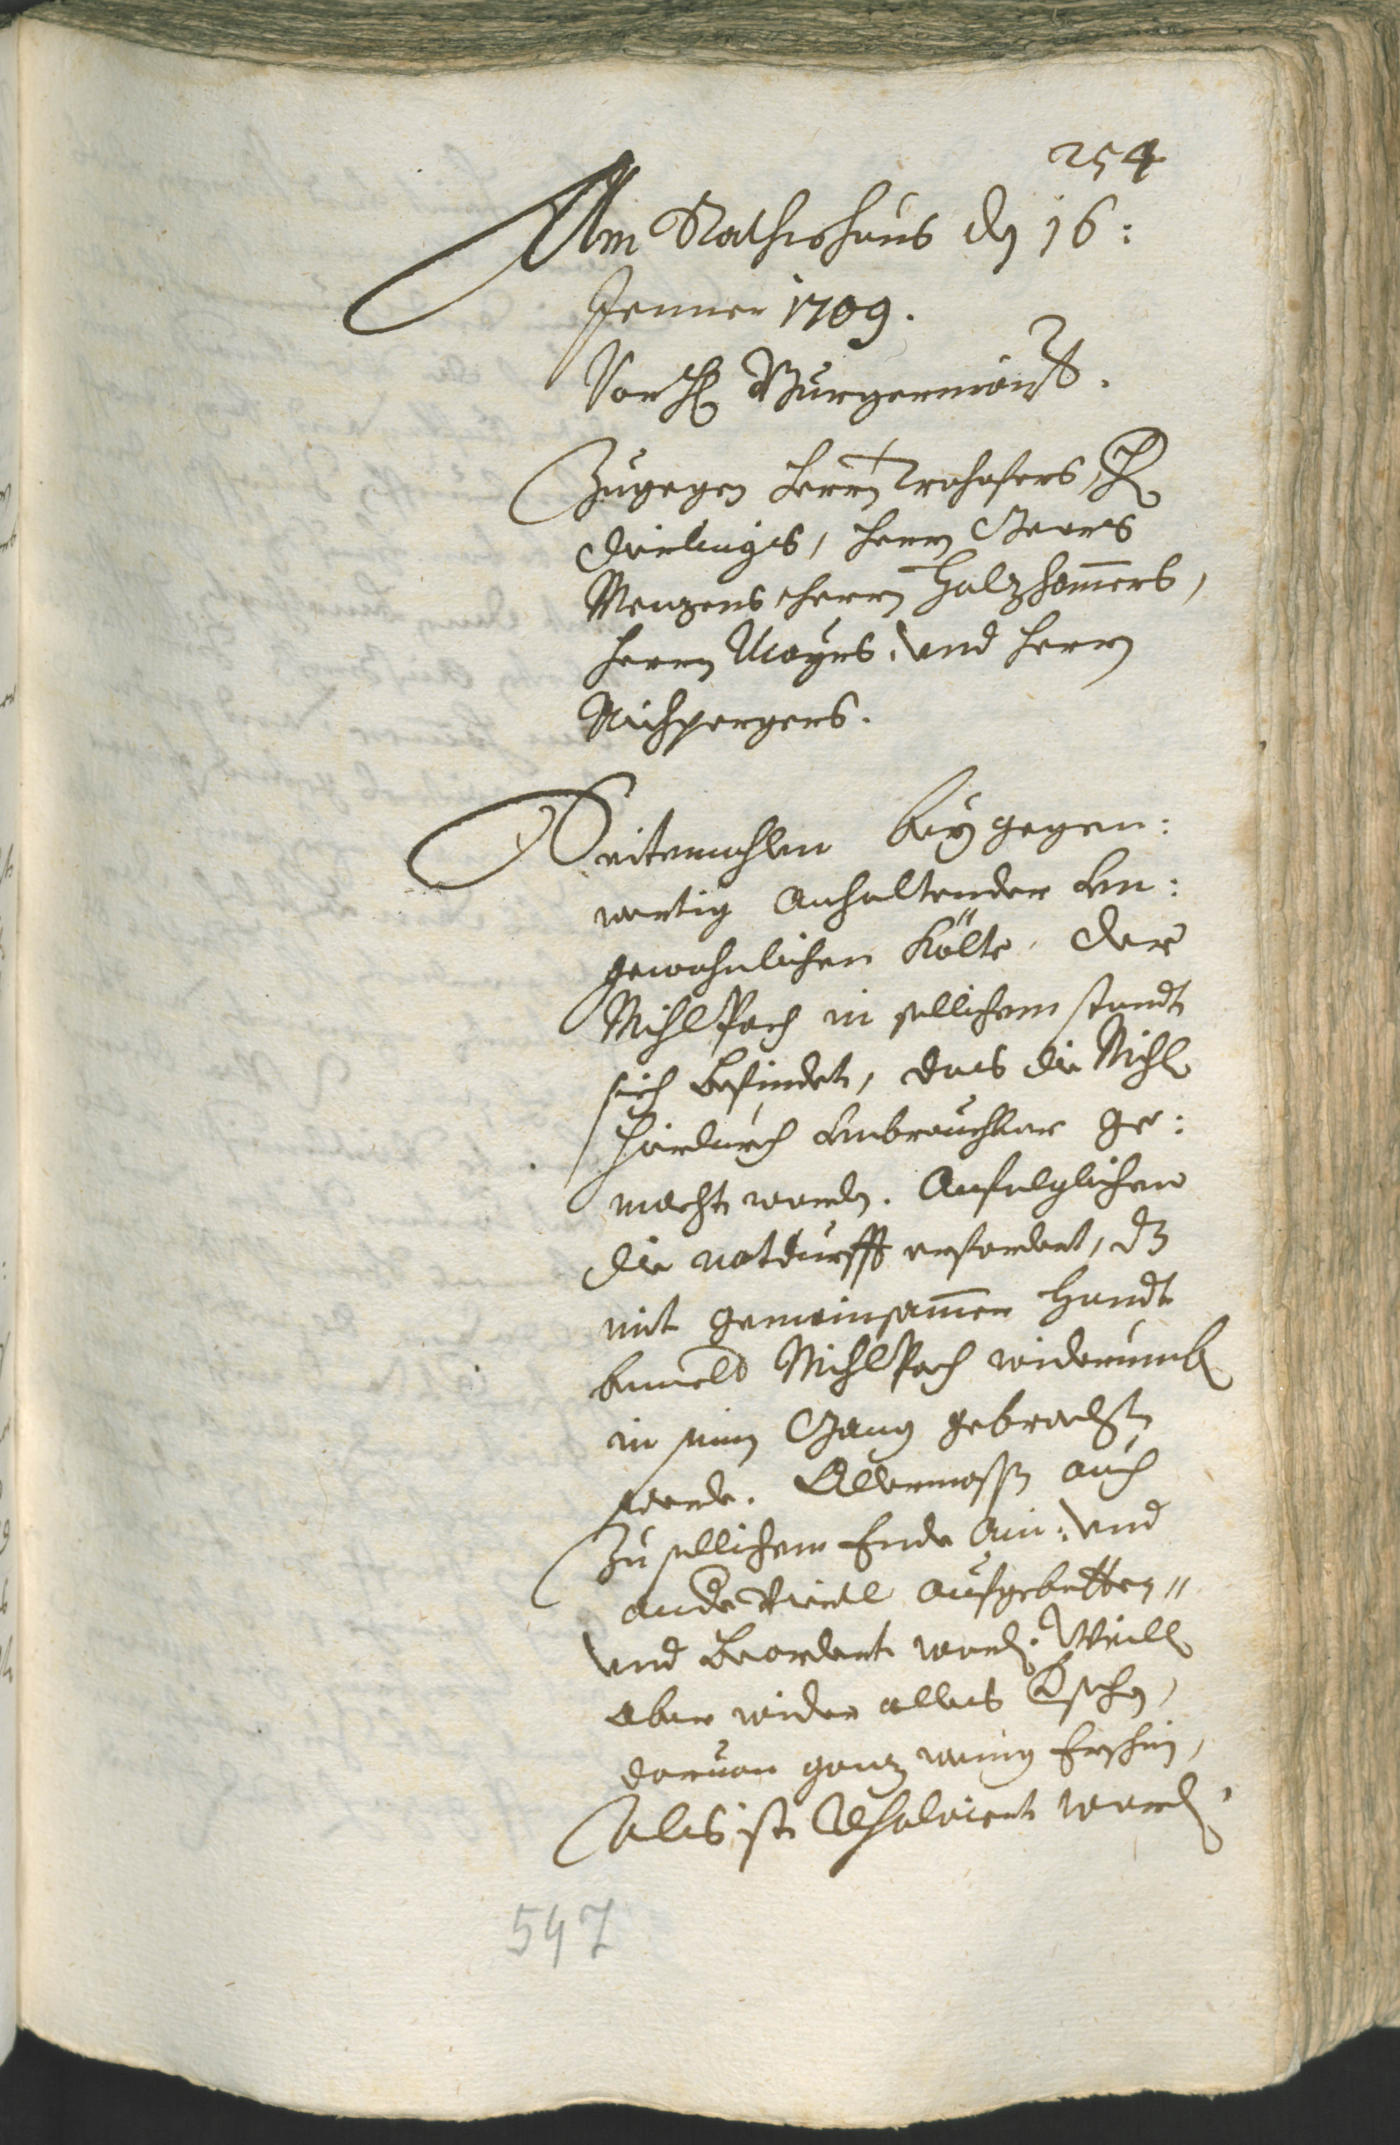 254
Am Rathshaus den 16:
Jenner 1709.
Vor H: Burgermaist.
Zugegen Herrn Trohofers, H:
Herrn Georg
Menzens Herrn Holzhamers,
Herrn Mayrs, und Herrn
Aichpergers.
Seitemahlen bey gegen:
wertig anhaltender un:
gewohnlichen Költe, der
MihlPach in sollichem standt
sich befindet, das die Mihl
hierdurch unbrauchbar ge:
macht worden. Anfolglichen
die notdurfft erfordert, dz
mit gemeinsamer handt
MihlPach widerumb
in sein Gang gebracht
werde. Allermassen auch
zu sollichem Ende ain: und
ander Viertl aufgebotten
und beordert worden. Weill
aber wider alles
daruon ganz wenig Erschin,
Als ist Resoluiert worden.
547